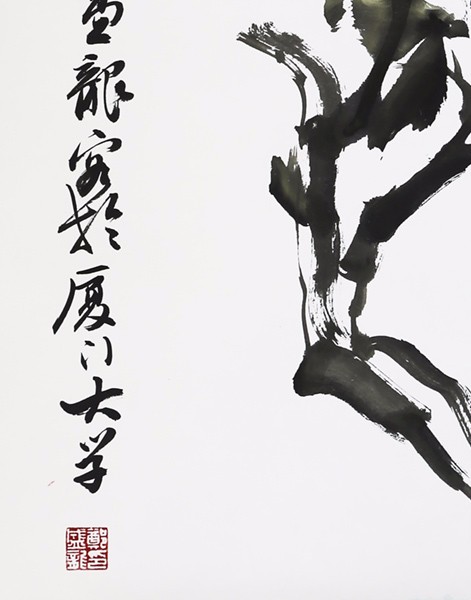 龍客於厦门大学